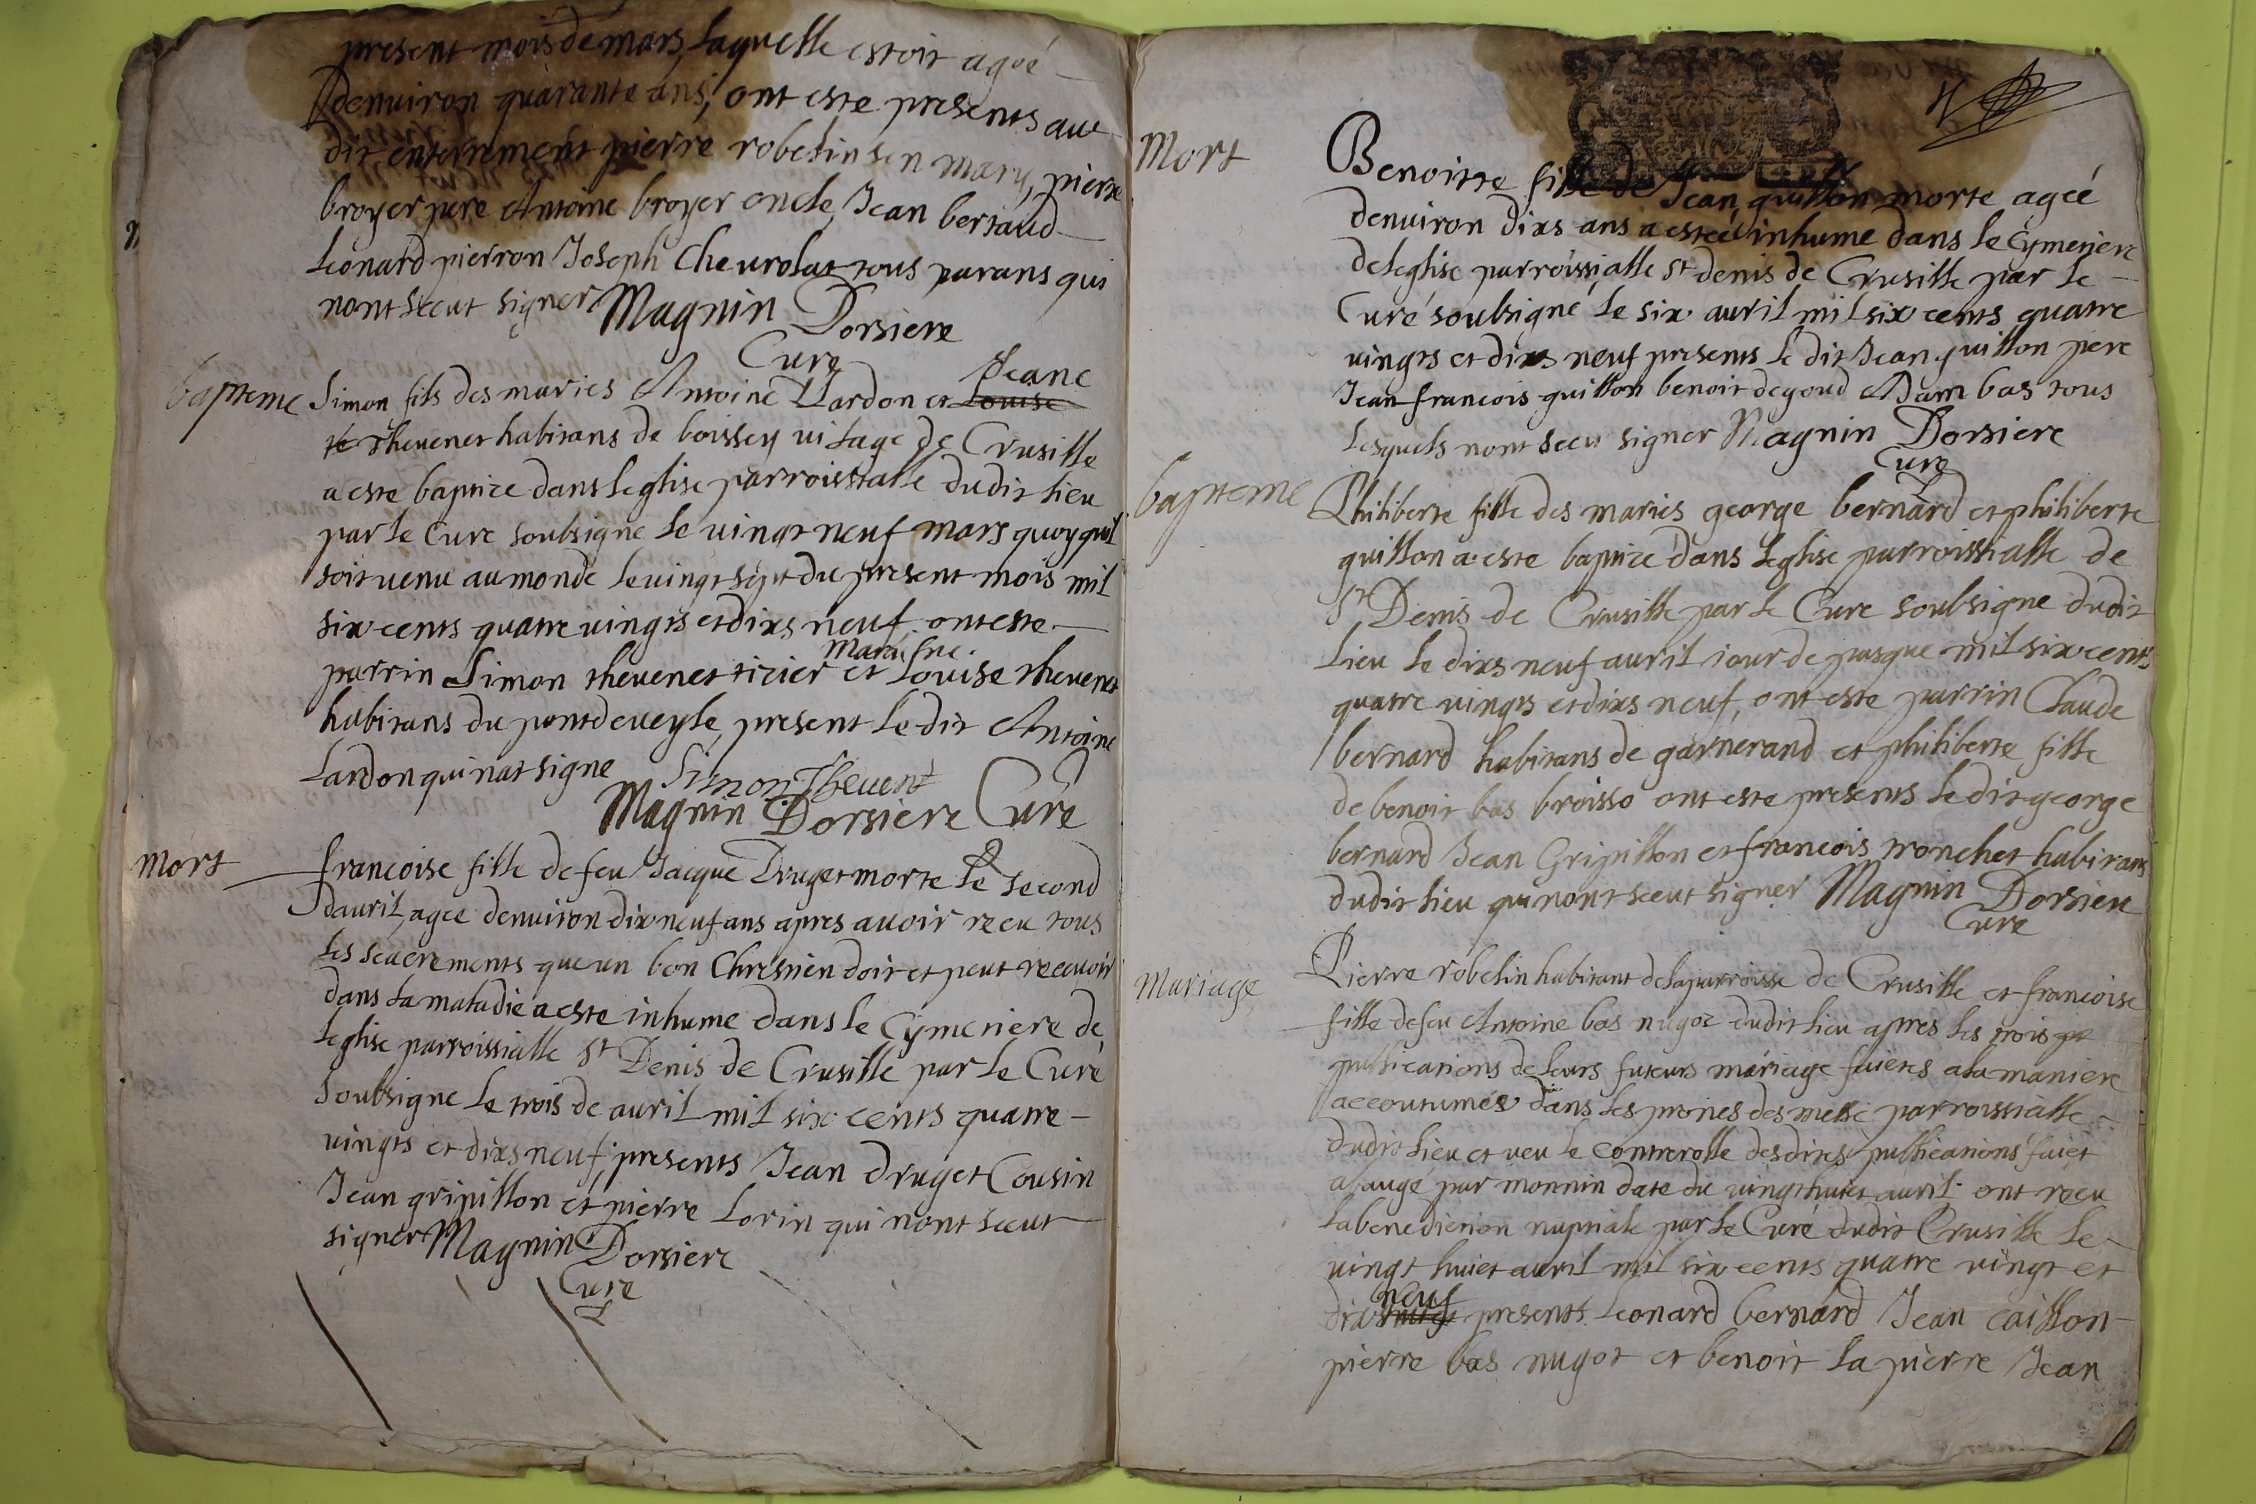 present mois de mars, laquelle estoit ageé
denuiron quarante ans, ont este presents au
dit enterrement pierre robelin son mary, pierre
broyer pere Antoine broyer oncle, Jean bertaud
Leonard pierron Joseph Cheurolat tous parans qui
nont sceut signer Magnin Dorsiere
Cure
Jeane
bapteme Simon fils des maries Antoine Lardon et Louise
thevenet habitans de boissey vilage de Crusille
a este baptize dans leglise parroissialle dudit lieu
par le Cure soubsigne le vingt neuf mars quoy quil
soit venu au monde le vingt sept du present mois mil
six cents quatre vingts et dixs neuf ont este
parrin Simon thevenet tizier et Louise thevenet
habitans du pont de veyle, present le dit Antoine
Lardon qui nat signe Simon Thevent
Magnin Dorsiere Cure
mort francoise fille de feu Jacque Druget morte le second
dauril, agee denuiron dix neuf ans apres auoir receu tous
les sacrements que un bon Chrestien doit et peut receuoir
dans la maladie a este inhume dans le Cymetiere de
leglise parroissialle St Denis de Crusille par le Curé
soubsigne le trois de auril mil six cents quatre
vingts et dixs neuf, presents Jean druget Cousin
Jean gripillon et pierre Lorin qui nont sceut
signer Magnin Dorsiere
Cure
Mort Benoitte fille de Jean guillon morte ageé
denuiron dixs ans a esteé inhume dans le Cymetiere
de leglise parroissialle St denis de Crusille par le
Curé soubsigné le six auril mil six cents quatre
vingts et dixs neuf presents le dit Jean guillon pere
Jean francois guillon benoit degoud Adam bas tous
lesquels nont sceu signer Magnin Dorsiere
Cure
bapteme Philiberte fille des maries george bernard et philiberte
guillon a este baptize dans leglise parroissialle de
St Denis de Crusille par le Cure soubsigne dudit
lieu le dixs neuf auril iour de pasque mil six cents
quatre vingts et dixs neuf, ont este parrin Claude
bernard habitans de garnerand et philiberte fille
de benoit bas broisso ont este presents le dit george
bernard Jean Gripillon et francois tronchet habitans
dudit lieu qui nont sceut signer Magnin Dorsiere
Cure
Mariage Pierre robelin habitant de la parroisse de Crusille et francoise
fille de feu Antoine bas nugoz dudit lieu apres les trois
publications de leurs futeurs mariage faietes a la maniere
accoutumeé dans les prones des messe parroissialle
dudit lieu et veu le controolle desdites publications faiet
a bauge par monnin date du vingt huiet auril ont receu
la benediction nuptiale par le Curé dudit Crusille le
vingt huiet auril mil six cents quatre vingt et
neuf
dixs presents Leonard bernard Jean caillon
pierre bas nugot et benoit la pierre Jean